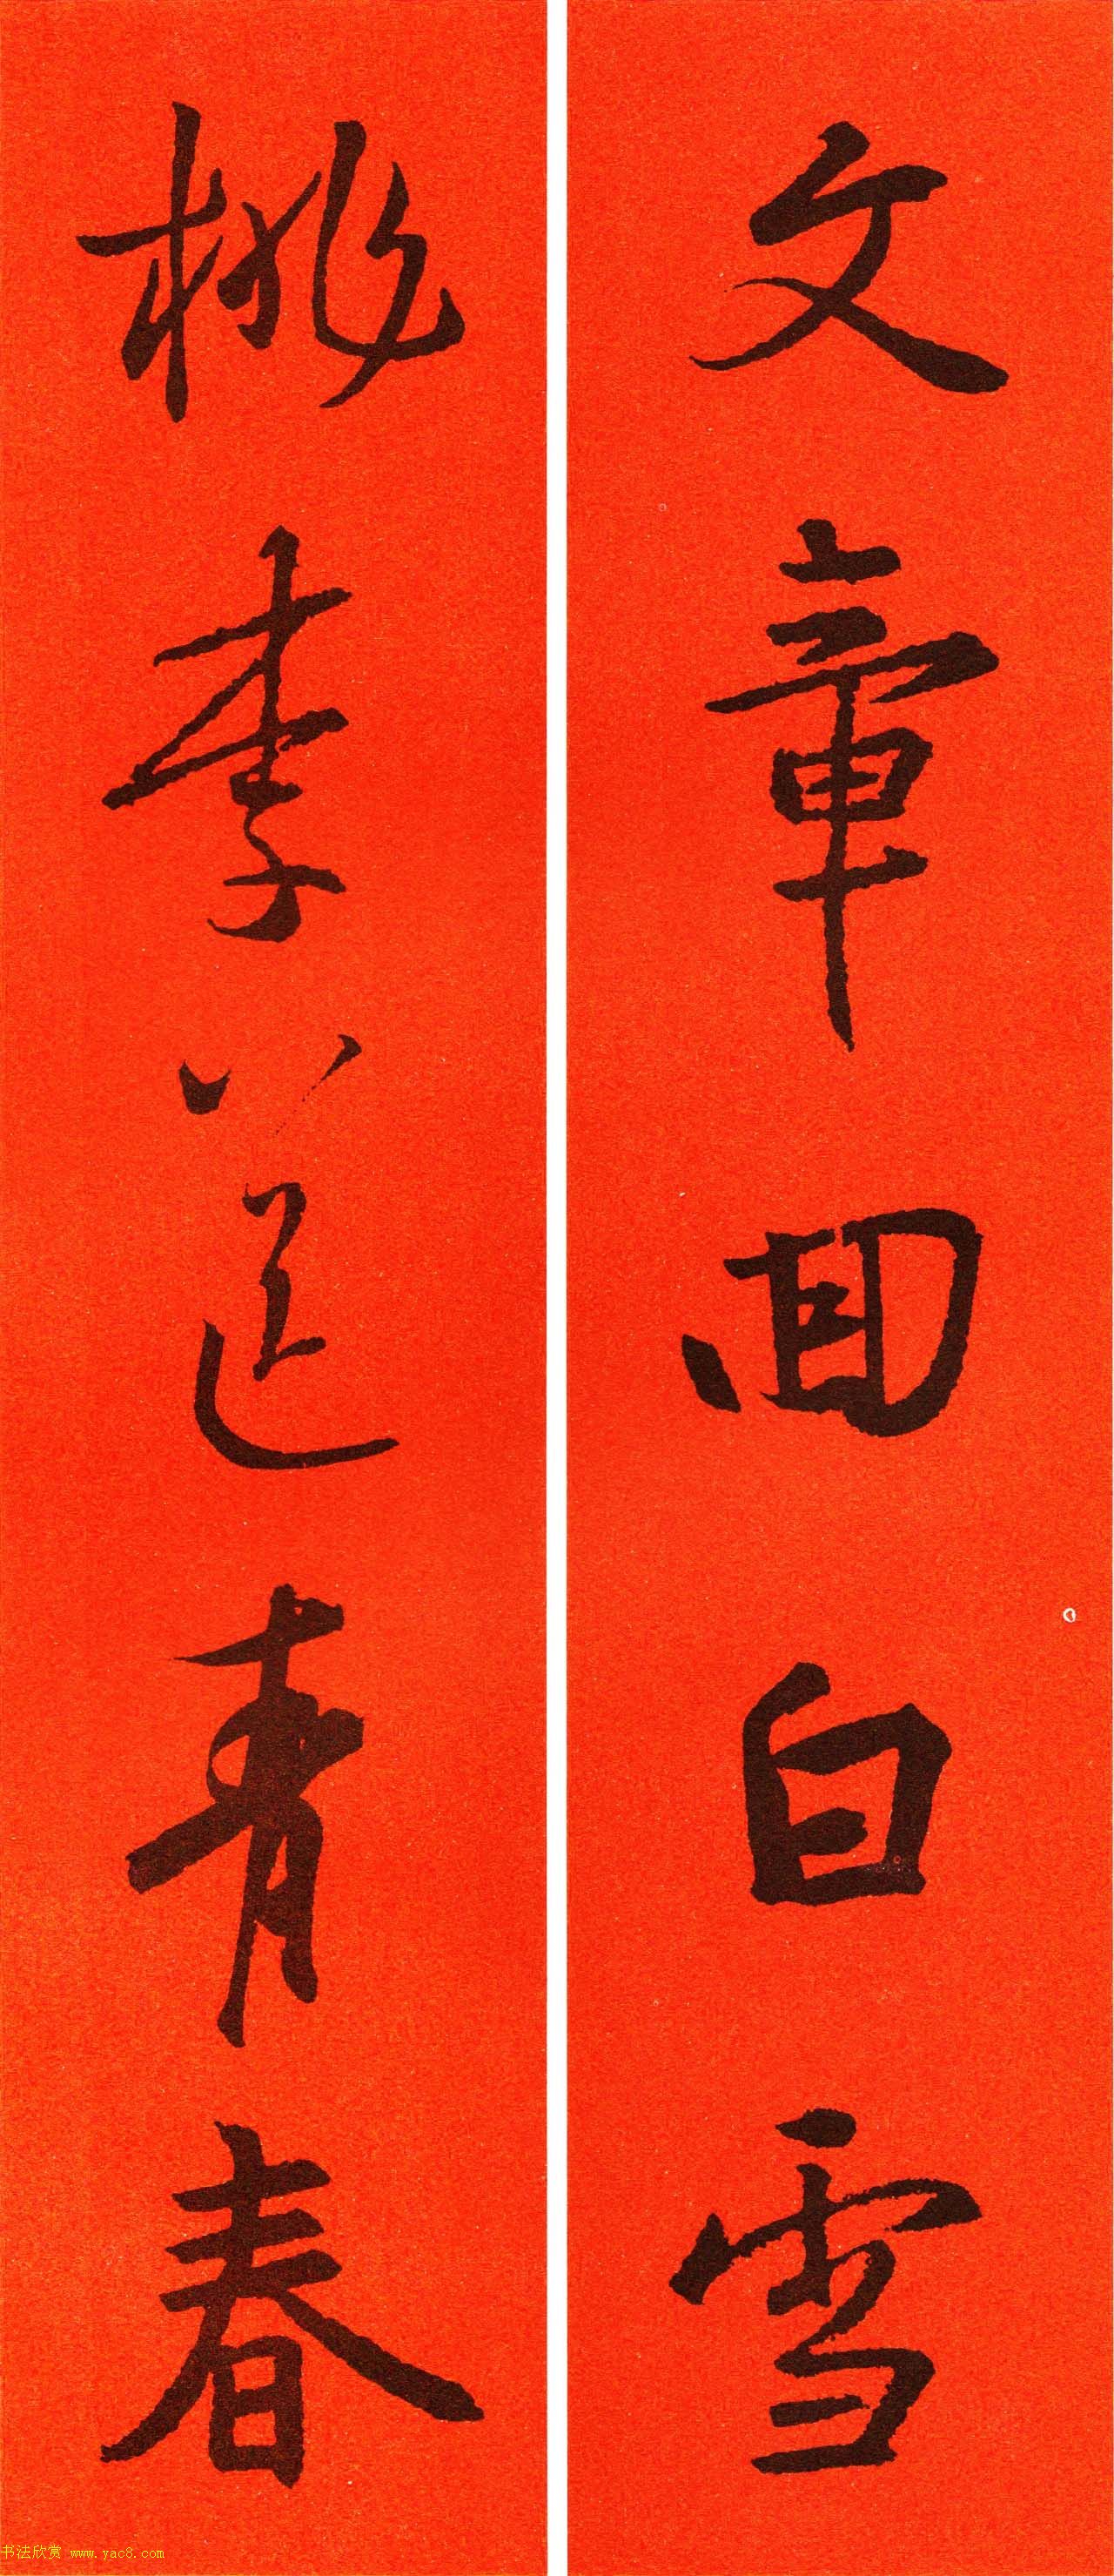 文章回白雪
桃李青春
书法欣赏 www.yac8.com